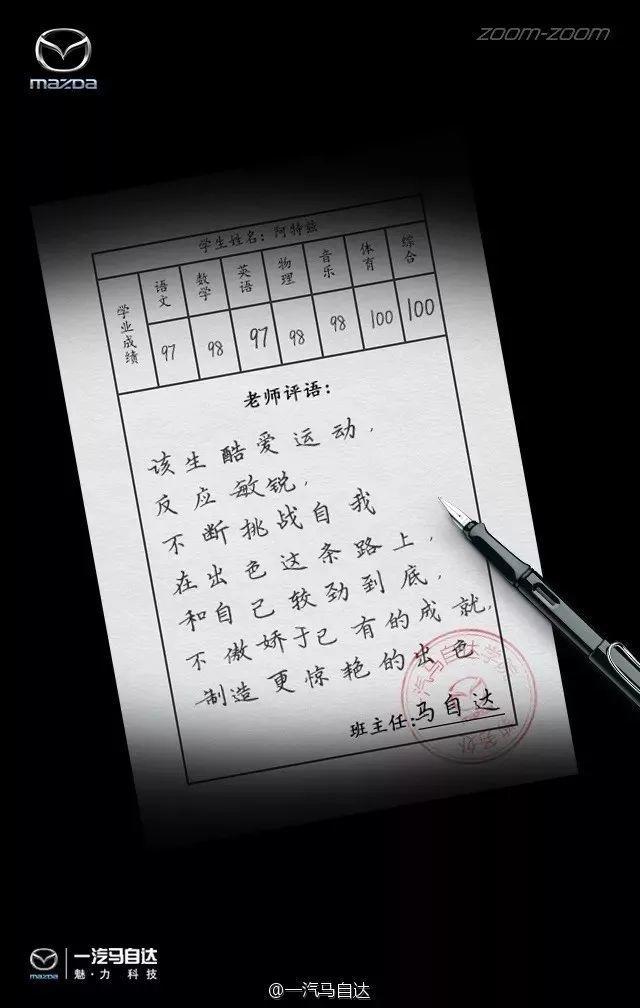 mazda
zoom-zoom
学生姓名：阿特兹
学业成绩 语文 数学 英语 物理 音乐 体育 综合
97 98 97 98 98 100 100
老师评语：
该生酷爱运动，
反应敏锐，
不断挑战自我
在出色这条路上，
和自己较劲到底，
不傲娇于已有的成就，
制造更惊艳的出色
班主任：马自达
一汽马自达学
一汽马自达
魅·力 科技
@一汽马自达